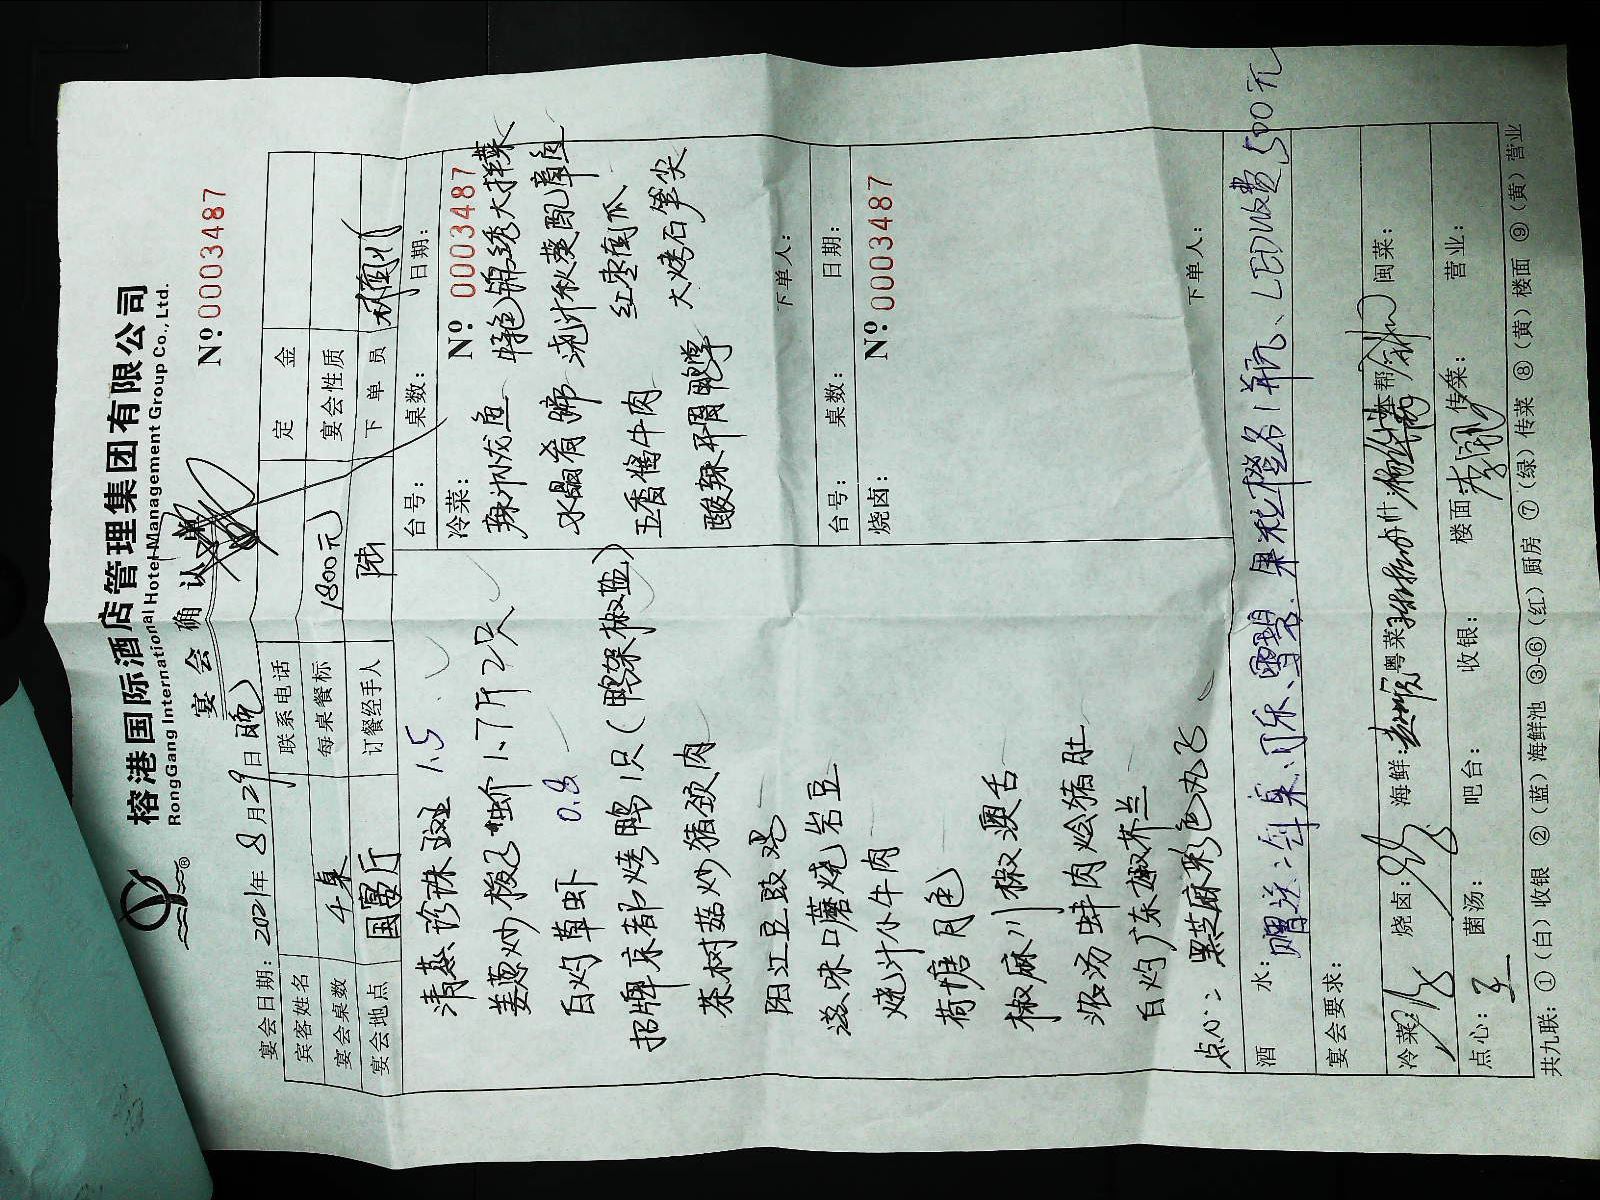 榕港国际酒店管理集团有限公司
RongGang International Hotel Management Group Co., Ltd.
宴会确认单
№ 0003487
宴会日期：2021年8月29日晚
宾客姓名 联系电话 定金
宴会桌数 4桌 每桌餐标 1800元 宴会性质
宴会地点 国宴厅 订餐经手人 陆 下单员
清蒸珍珠斑 1.5
姜葱炒梭子蟹 1.7斤2只
白灼草虾 0.8
招牌京都烤鸭1只（鸭架椒盐）
茶树菇炒猪颈肉
阳江豆豉
滋味口蘑烧岩豆
烧汁小牛肉
荷塘月色
椒麻川椒澳舌
浓汤蚌肉烩猪肚
白灼广东菜芥兰
点心：黑芝麻彩色丸子
台号： 桌数： 日期：
冷菜： № 0003487
特色锦绣大拼菜
水晶肴蹄 浇汁秋葵配章鱼
五香酱牛肉 红枣南瓜
大烤石笋尖
下单人：
台号： 桌数： 日期：
烧卤： № 0003487
下单人：
酒水： 赠送：每桌：可乐、雪碧、果粒橙各1瓶、LED收费500元
宴会要求：
冷菜： 烧卤： 海鲜： 粤菜： 本帮： 闽菜：
点心： 菌汤： 吧台： 收银： 楼面： 传菜： 营业：
共九联：①（白）收银 ②（蓝）海鲜池 ③-⑥（红）厨房 ⑦（绿）传菜 ⑧（黄）楼面 ⑨（黄）营业